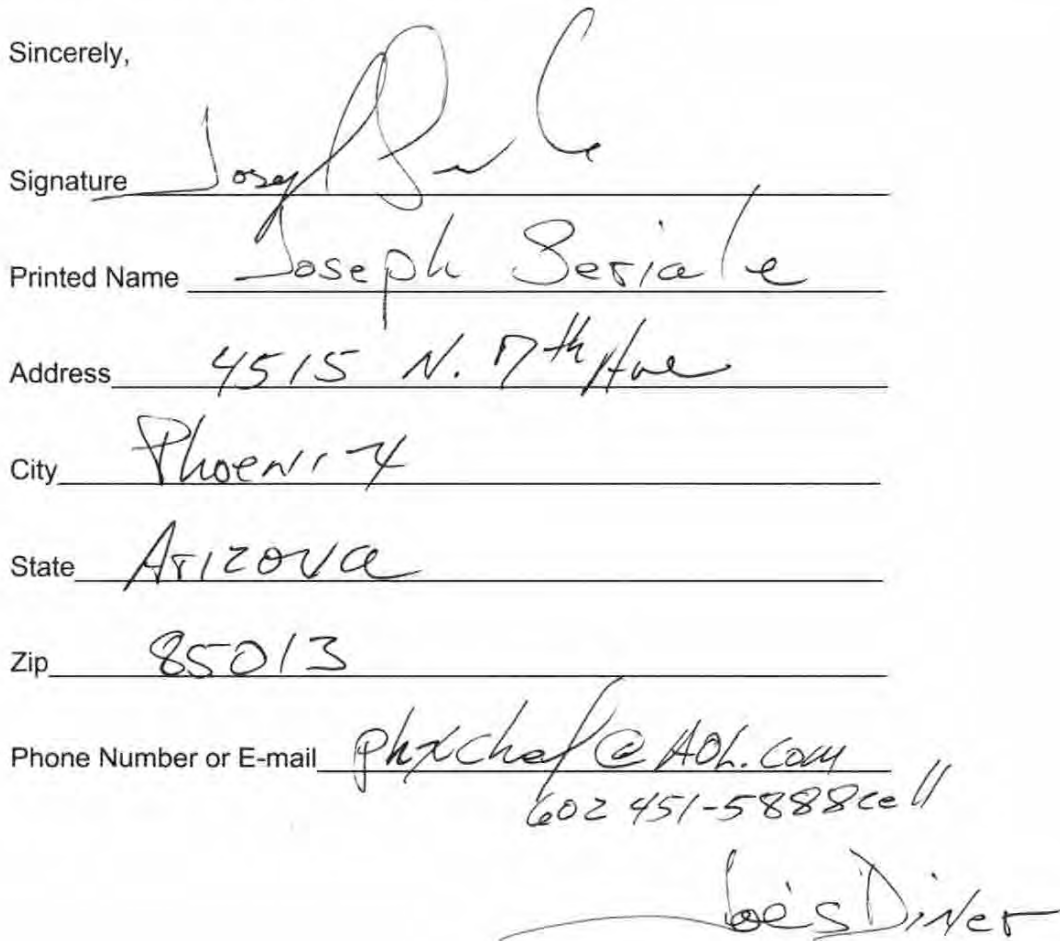 Sincerely,
Signature
Printed Name Joseph Seriale
Address 4515 N. 7th Ave
City Phoenix
State Arizona
Zip 85013
Phone Number or E-mail phxchef@AOL.com
602 451-5888 cell
Joe's Diner